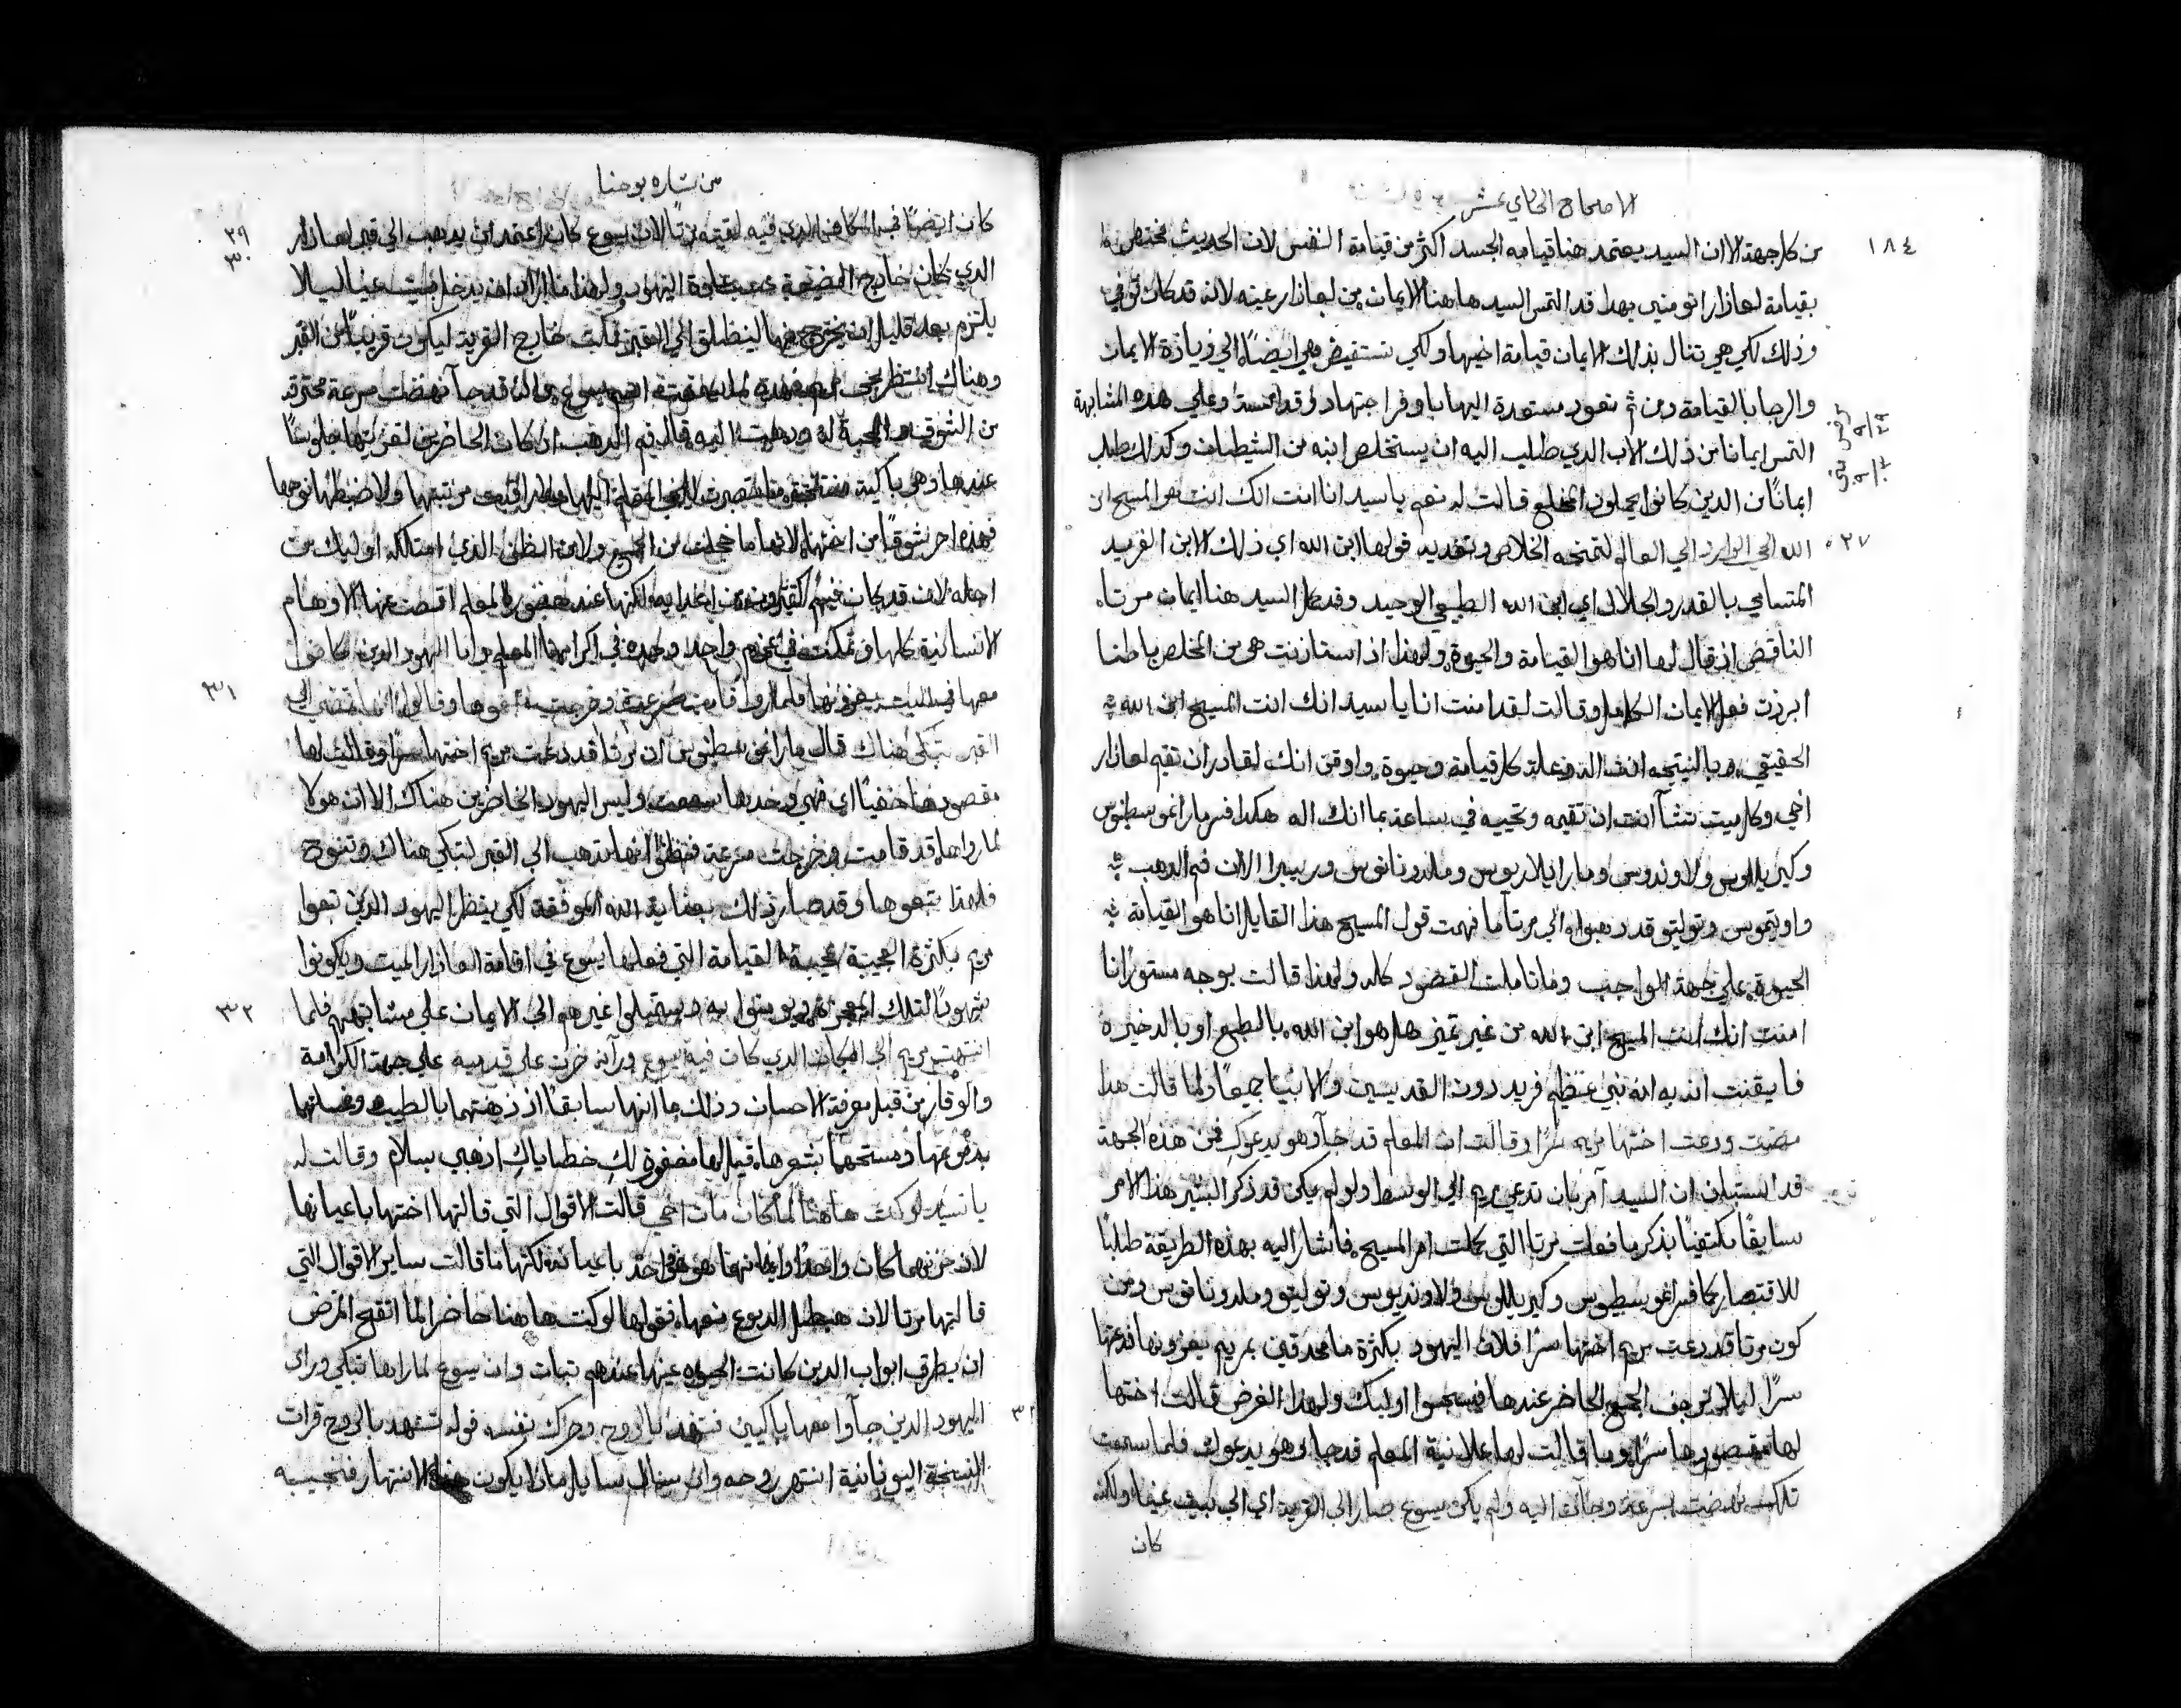 الاصحاح الحادي عشر
١٨٤
من كل جهة الا ان السيد يعتمد هنا قيامه الجسد اكثر من قيامة النفس لان الحديث مختص
بقيامة لعازار اتومنين بهدا قد التمس السيد هاهنا الايمان من لعازار عينه لانه قد كان توفي
وذلك لكي هي تنال بذلك الايمان قيامة اخيها ولكي تستفيض هي ايضاً الي زيادة الايمان
والرجا بالقيامة ومن ثم تعود مستعدة اليها باوفر اجتهاد وقداسة وعلي هذه المشابهة
التمس ايمانا من ذلك الاب الدي طلب اليه ان يستخلص ابنه من الشيطان وكدلك طلب
ايماناً من الدين كانوا يحملون المخلع قالت له نعم يا سيد انا امنت انك انت هو المسيح ابن
٢٧
الله الحي الوارد الي العالم لتمنحه الخلاص وتفديه قولها ابن الله اي ذلك الابن الفريد
المتسامي بالقدر والجلال اي ابن الله الطبيعي الوحيد وقد كمل السيد هنا ايمان مرتا
الناقص اذ قال لها انا هو القيامة والحيوة ولهذا اذ استنارت هي من المخلص باطنا
ابرزت فعل الايمان الكامل وقالت لقد امنت انا يا سيد انك انت المسيح ابن الله
الحقيقي وبالنتيجه انت اله وعلة كل قيامة وحيوة واوقن انك لقادر ان تقيم لعازار
اخي وكل ميت تشآ انت ان تقيمه وتحييه في ساعة بما انك اله هكدا فسر مار اغوسطينوس
وكيريللوس ولاونديوس ومار ايلاريوس وملدوناتوس وريبيرا الا ان فم الدهب
واوتيموس وتوليتو قد دهبوا الي مرتا ما فهمت قول المسيح هذا القايل انا هو القيامة
الحيوة علي جهة الواجب وما تاملت القصود كله ولهذا قالت بوجه مستور انا
امنت انك انت المسيح ابن الله من غير تميز هل هو ابن الله بالطبع او بالدخيرة
فايقنت اذ به انه نبي عظيم فريد دون القديسين والانبيا جميعاً ولما قالت هدا
مضت ودعت اختها مريم سرًا وقالت ان المعلم قد جآ وهو يدعوك فمن هذه الجهة
قد استبان ان السيد آمر بان تدعي مريم الي الوسط ولو لم يكن قد ذكر البشير هذا الامر
سابقاً مكتفياً بذكر ما فعلت مرتا التي كملت امر المسيح فاشار اليه بهذه الطريقة طلباً
للاقتصار كما فسر اغوسطينوس وكيريللوس ولاونديوس وتوليتو وملدوناتوس ومن
كون مرتا قد دعت مريم اختها سرًا فلان اليهود بكثرة ما محدقين بمريم يعزونها فدعتها
سرًا ليلا يرجف الجمع الحاضر عندها فيسجسوا اوليك ولهدا الغرض قالت اختها
لها مقصودها سرًا وما قالت لها علانية المعلم قد جا وهو يدعوك فلما سمعت
تلك نهضت بسرعة وجآت اليه ولم يكن يسوع صار الي القرية اي الي بيت عنيا ولكنه
كان
من بشاره يوحنا
كان ايضاً في المكان الدي فيه لقيته مرتا لان يسوع كان اعتمد ان يدهب الي قبر لعازار
٢٩
٣٠
الدي كان خارج الضيعة حسب عادة اليهود ولهذا ما اراد ان يدخل بيت عنيا ليلا
يلتزم بعد قليل ان يخرج منها لينطلق الي القبر فمكث خارج القرية ليكون قريباً من القبر
وهناك انتظر مريم فهذه لما سمعت ان يسوع قد جآ نهضت مسرعة محترقة
من الشوق والمحبة له ودهبت اليه قال فم الدهب اد كان الحاضرين لتعزيتها جلوساً
عندها وهي باكية
فهذه احر شوقاً من اختها لانها ما خجلت من الجمع ولا من الظن الذي امتلكه اوليك من
اجله لان قد كان فيهم كثيرون من اعدايه لكنها عند حضور المعلم اقصت عنها الاوهام
الانسانية كلها وتمكنت في عزم واحد وحده في اكرامها المعلم واما اليهود الدين كانوا
٣١
معها في البيت يعزونها فلما راوا قامت مسرعة وخرجت تبعوها وقالوا انها تمضي الي
القبر تبكي هناك قال مار اغوسطينوس ان مرتا قد دعت مريم اختها سرًا وقالت لها
مقصودها خفياً اي فهي وحدها سمعت وليس اليهود الحاضرين هناك الا ان هولا
لما راوها قد قامت وخرجت مسرعة فظنوا انها تدهب الي القبر لتبكي هناك وتنوح
فلهذا تبعوها وقد صار ذلك بعناية الله الموفقة لكي ينظر اليهود الدين تبعوا
مريم بكثرة العجيبة عجيبة القيامة التي فعلها يسوع في اقامة لعازار الميت ويكونوا
شهوداً لتلك المعجزة ويومنوا به ويستميلوا غيرهم الي الايمان علي مشابهتهم فلما
٣٢
انتهت مريم الي المكان الدي كان فيه يسوع ورآته خرت علي قدميه علي جهة الكرامة
والوقار من قبل معرفة الاحسان وذلك بما انها سابقاً اذ دهنتهما بالطيب وغسلتهما
بدموعها ومسحتهما بشعرها قيل لها مغفورة لكِ خطاياكِ اذهبي بسلام وقالت له
يا سيد لو كنت هاهنا لما كان مات اخي قالت الاقوال التي قالتها اختها باعيانها
لان حزنهما كان واحدًا وايمانهما هو هو واحد باعيانه لكنها ما قالت ساير الاقوال التي
قالتها مرتا لان هطل الدموع منعها فقولها لو كنت هاهنا حاضرا لما اتقح المرض
ان يطرق ابواب الدين كانت الحيوه عينها عندهم تبات وان يسوع لما راها تبكي وراي
٣٣
اليهود الدين جآوا معها باكيين تنهد بالروح وحرك نفسه قوله تنهد بالروح قرات
النسخة اليونانية انتهر روحه وان سال سايل ماذا يكون هذا الانتهار فنجيبه